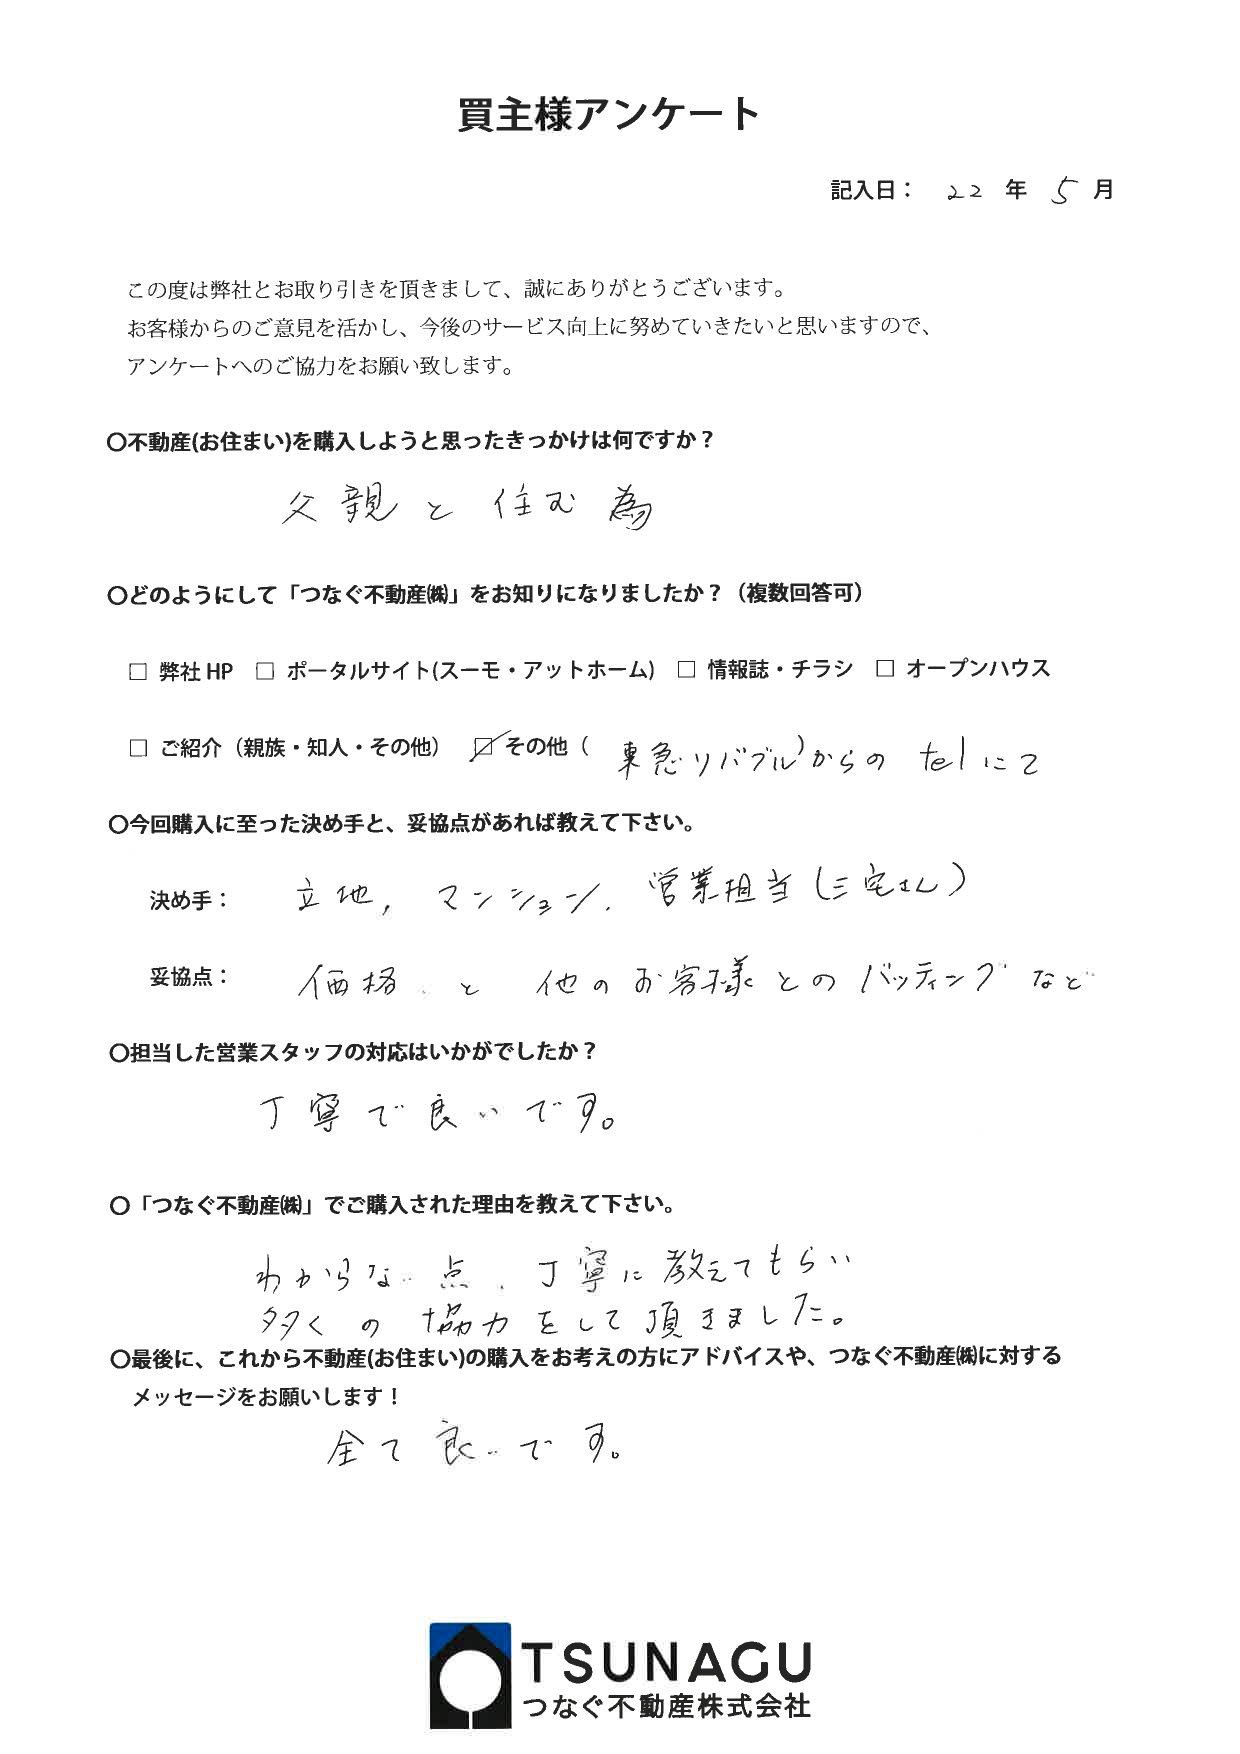 買主様アンケート
記入日： 22 年 5 月
この度は弊社とお取り引きを頂きまして、誠にありがとうございます。
お客様からのご意見を活かし、今後のサービス向上に努めていきたいと思いますので、
アンケートへのご協力をお願い致します。
〇不動産(お住まい)を購入しようと思ったきっかけは何ですか？
父親と住む為
〇どのようにして「つなぐ不動産㈱」をお知りになりましたか？（複数回答可）
□ 弊社 HP □ ポータルサイト(スーモ・アットホーム) □ 情報誌・チラシ □ オープンハウス
□ ご紹介（親族・知人・その他） ☑ その他（ 東急リバブル）からの telにて
〇今回購入に至った決め手と、妥協点があれば教えて下さい。
決め手： 立地, マンション. 営業担当(三宅さん)
妥協点： 価格 と 他のお客様とのバッティングなど
〇担当した営業スタッフの対応はいかがでしたか？
丁寧で良いです。
〇「つなぐ不動産㈱」でご購入された理由を教えて下さい。
わからない点、丁寧に教えてもらい
多くの協力をして頂きました。
〇最後に、これから不動産(お住まい)の購入をお考えの方にアドバイスや、つなぐ不動産㈱に対する
メッセージをお願いします！
全て良いです。
TSUNAGU
つなぐ不動産株式会社